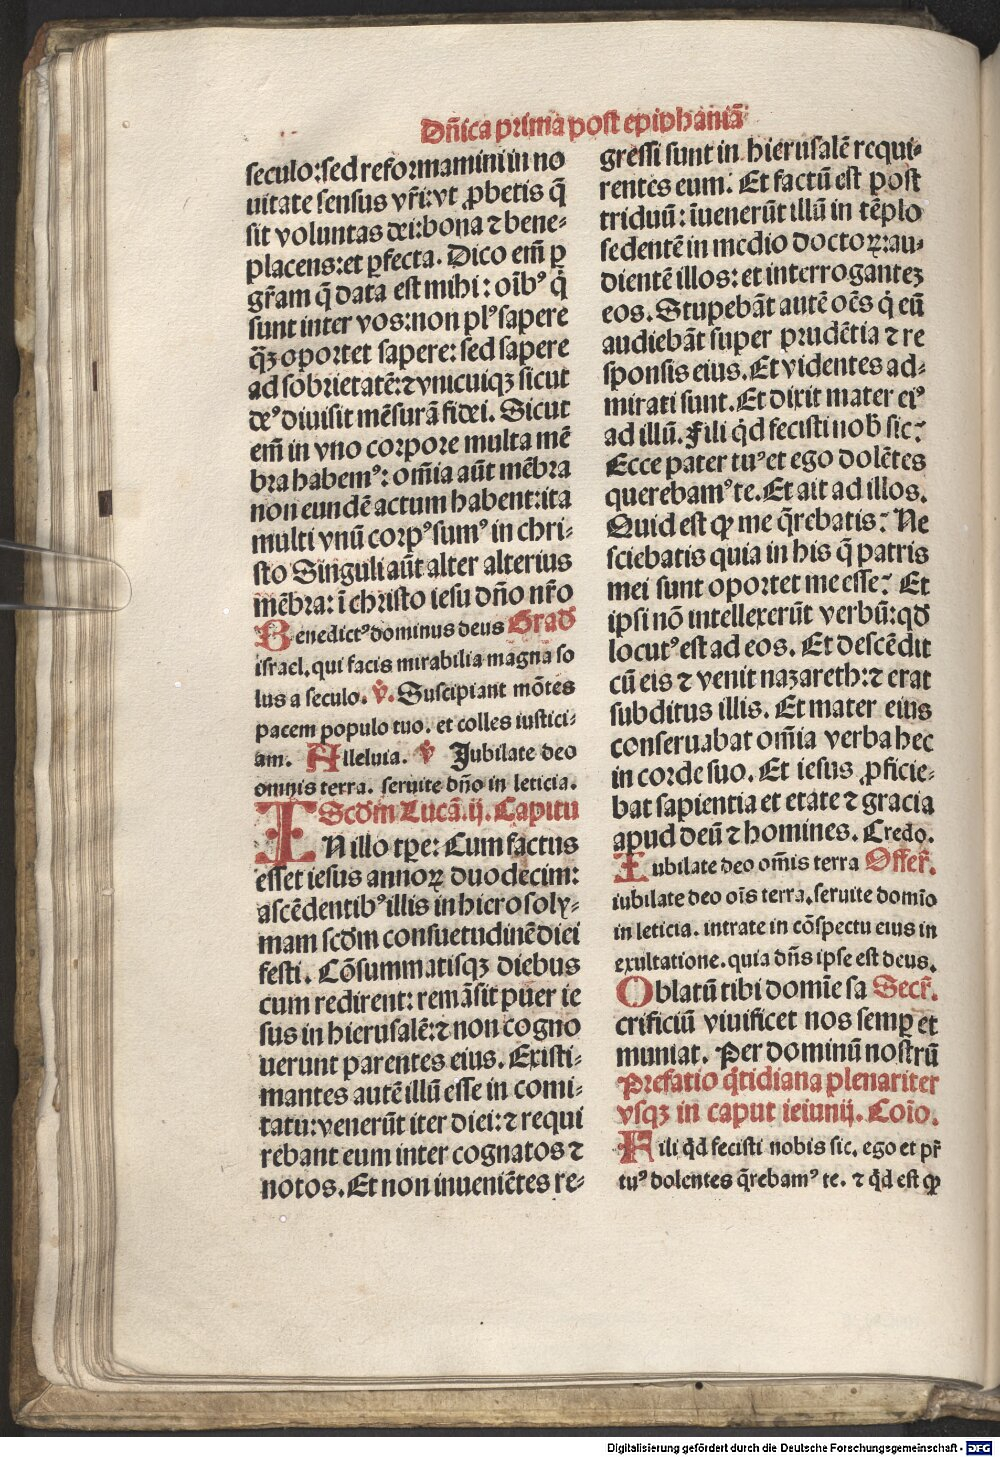 Dn̄ica prima post epiphaniā
seculo: sed reformamini in no
uitate sensus vr̄i: vt ꝓbetis q̄
sit voluntas dei: bona ⁊ bene-
placens: et ꝑfecta. Dico em̄ ꝑ
gr̄am q̄ data est mihi: oīb⁹ q̇
sunt inter vos: non pl⁹ sapere
q̄ꝫ oportet sapere: sed sapere
ad sobrietatē: ⁊ vnicuiqꝫ sicut
de⁹ diuisit mēsurā fidei. Sicut
em̄ in vno corpore multa mē
bra habem⁹: om̄ia aūt mēbra
non eundē actum habent: ita
multi vnū corp⁹ sum⁹ in chri-
sto Singuli aūt alter alterius
mēbra: ī christo iesu dn̄o nr̄o
Benedict⁹ dominus deus Grad̄
israel. qui facis mirabilia magna so
lus a seculo. v̇. Suscipiant mōtes
pacem populo tuo. et colles iustici-
am. Alleluia. v̇ Jubilate deo
omnis terra. seruite dn̄o in leticia.
Scd̄m Lucā. ij. Capitu
IN illo tꝑe: Cum factus
esset iesus annoꝝ duodecim:
ascēdentib⁹ illis in hierosoly-
mam scd̄m consuetudinē diei
festi. Cōsummatisqꝫ diebus
cum redirent: remāsit puer ie
sus in hierusalē: ⁊ non cogno
uerunt parentes eius. Existi-
mantes autē illū esse in comi-
tatu: venerūt iter diei: ⁊ requi
rebant eum inter cognatos ⁊
notos. Et non inueniētes re-
gressi sunt in hierusalē requi-
rentes eum. Et factū est post
triduū: īuenerūt illū in tēplo
sedentē in medio doctoꝝ: au-
dientē illos: et interroganteꝫ
eos. Stupebāt autē oēs q̇ eū
audiebāt super prudētia ⁊ re
sponsis eius. Et videntes ad-
mirati sunt. Et dixit mater ei⁹
ad illū. Fili q̇d fecisti nob̄ sic?
Ecce pater tu⁹ et ego dolētes
querebam⁹ te. Et ait ad illos.
Quid est ꝙ me q̄rebatis? Ne
sciebatis quia in his q̄ patris
mei sunt oportet me esse? Et
ipsi nō intellexerūt verbū: qd̄
locut⁹ est ad eos. Et descēdit
cū eis ⁊ venit nazareth: ⁊ erat
subditus illis. Et mater eius
conseruabat om̄ia verba hec
in corde suo. Et iesus ꝓficie-
bat sapientia et etate ⁊ gracia
apud deū ⁊ homines. Credo.
Iubilate deo om̄is terra Offer̄.
iubilate deo oīs terra. seruite domīo
in leticia. intrate in cōspectu eius in
exultatione. quia dn̄s ipse est deus.
Oblatū tibi domīe sa Secr̄.
crificiū viuificet nos semꝑ et
muniat. Per dominū nostrū
Prefatio q̇tidiana plenariter
vsqꝫ in caput ieiunij. Coīo.
Fili q̇d fecisti nobis sic. ego et pr̄
tu⁹ dolentes q̄rebam⁹ te. ⁊ q̇d est ꝙ
Digitalisierung gefördert durch die Deutsche Forschungsgemeinschaft - DFG